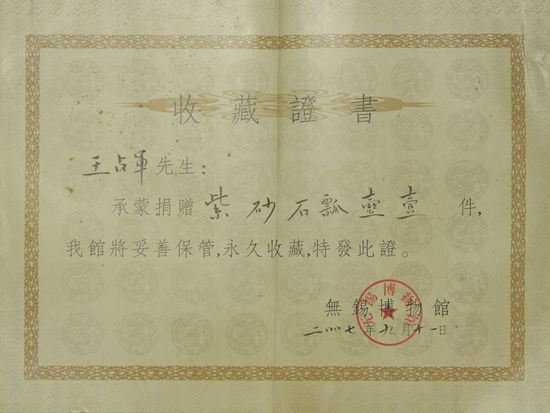 收藏證書
王占軍先生：
承蒙捐贈紫砂石瓢壺壹件，
我館將妥善保管，永久收藏，特發此證。
無錫博物館
二〇〇七年九月十一日